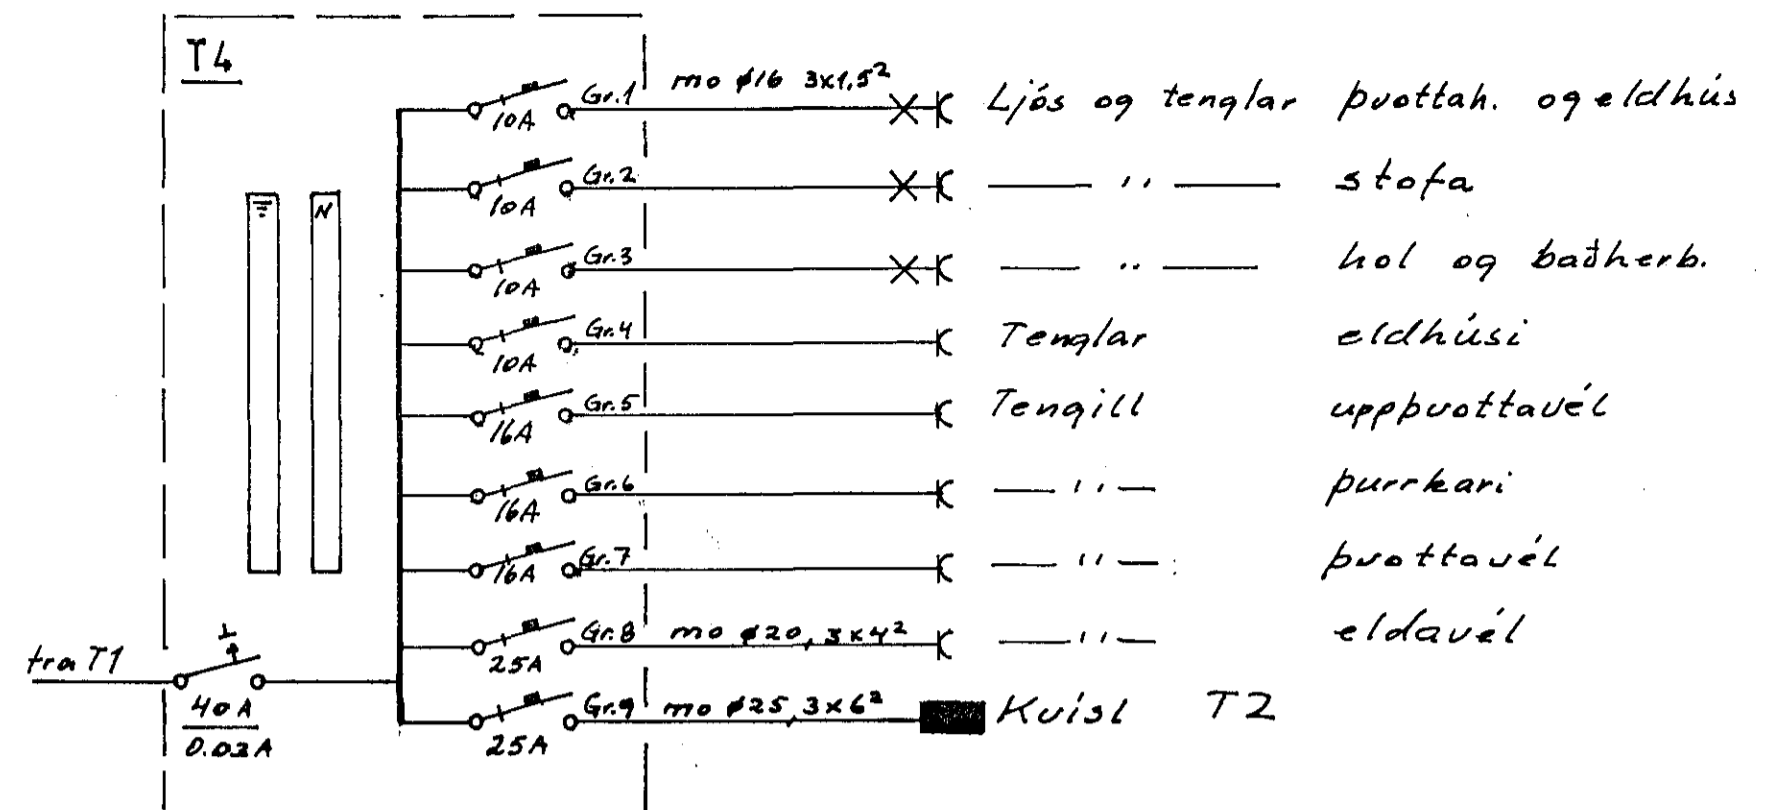 T4
Gr.1 mo ø16 3x1,5² Ljós og tenglar þvottah. og eldhús
10A
Gr.2 — '' — stofa
10A
N
Gr.3 — '' — hol og baðherb.
10A
Gr.4 Tenglar eldhúsi
10A
Gr.5 Tengill uppþvottavél
16A
Gr.6 — '' — þurrkari
16A
Gr.7 — '' — þvottavél
16A
Gr.8 mo ø20, 3x4² — '' — eldavél
25A
frá T1
40A
0.03A
Gr.9 mo ø25, 3x6² Kvísl T2
25A